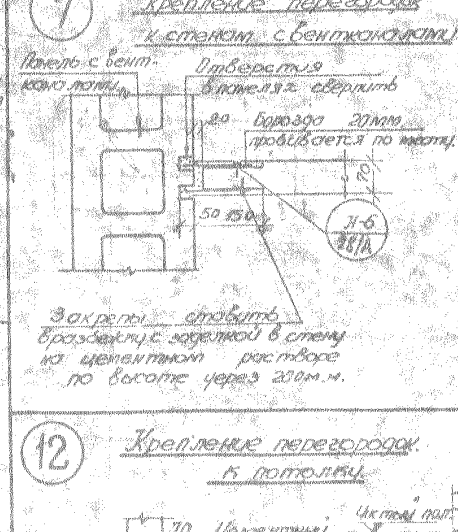 7
Крепление перегородок
к стенам с вентканалами
Панель с вент-
каналами
Отверстия
в панелях сверлить
20
Борозда 20мм
пробивается по месту.
70
50 150
Н-6
Закрепы ставить
вразбежку с заделкой в стену
на цементном растворе
по высоте через 200м.м.
12
Крепление перегородок
к потолку.
Чистый пол.
70